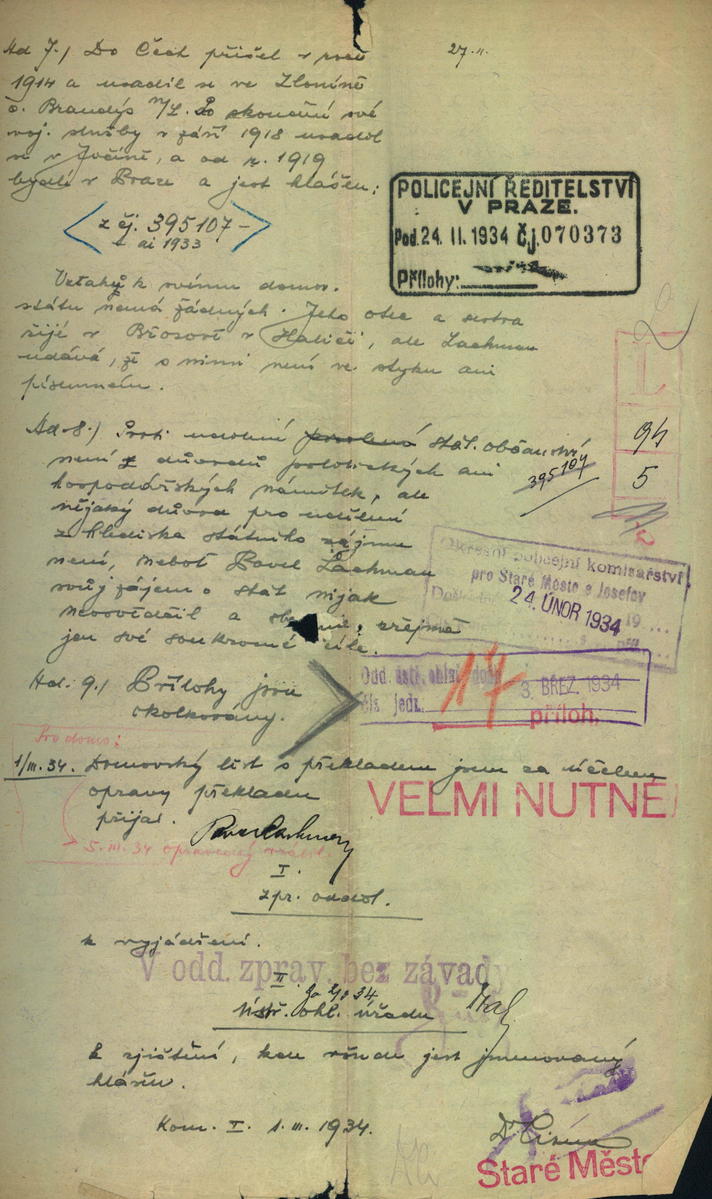 Ad 7.) Do Čech přišel v roce
27. II.
1914 a usadil se ve Zloníně
o. Brandýs n/L. Po skončení své
voj. služby v září 1918 usadil
se v Jičíně, a od r. 1919
bydlí v Praze a jest hlášen:
z čj. 395107 -
ai 1933
POLICEJNÍ ŘEDITELSTVÍ
V PRAZE.
Pod. 24. II. 1934 čj. 070373
Přílohy:
Vztahů k svému domov.
státu nemá žádných. Jeho otec a sestra
žijí v v Haliči, ale Lachman
udává, že s nimi není ve styku ani
písemném.
Ad 8.) Proti udělení povolení stát. občanství
není z důvodů politických ani
395107
94
5
hospodářských námitek, ale
nějaký důvod pro udělení
z hlediska státního zájmu
není, neboť Pavel Lachman
svůj zájem o stát nijak
neosvědčil a zřejmě
jen své soukromé cíle.
Okresní policejní komisařství
pro Staré Město a Josefov
24. ÚNOR 1934
Ad. 9.) Přílohy jsou
okolkovány.
Odd. ústř. ohl.
čís. jedn.
17
3. BŘEZ. 1934
příloh.
Pro domo:
1/III. 34. Domovský list s překladem jsem za účelem
opravy překladu
přijal.
Pavel Lachman
VELMI NUTNÉ
5. III. 34 opravený vrátil
I.
zpr. odděl.
k vyjádření.
V odd. zprav. bez závady
II.
34
Ústř. ohl. úřadu
k zjištění, kde všude jest jmenovaný
hlášen.
Kom. I. 1. III. 1934.
Staré Město